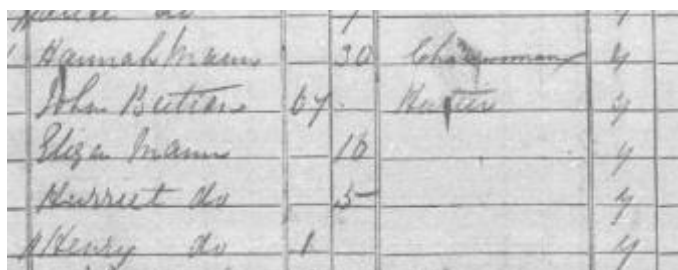 do 9 y
Hannah Mann 30 Charwoman y
John 67 y
Eliza Mann 16 y
Harriet do 5 y
Henry do 1 y